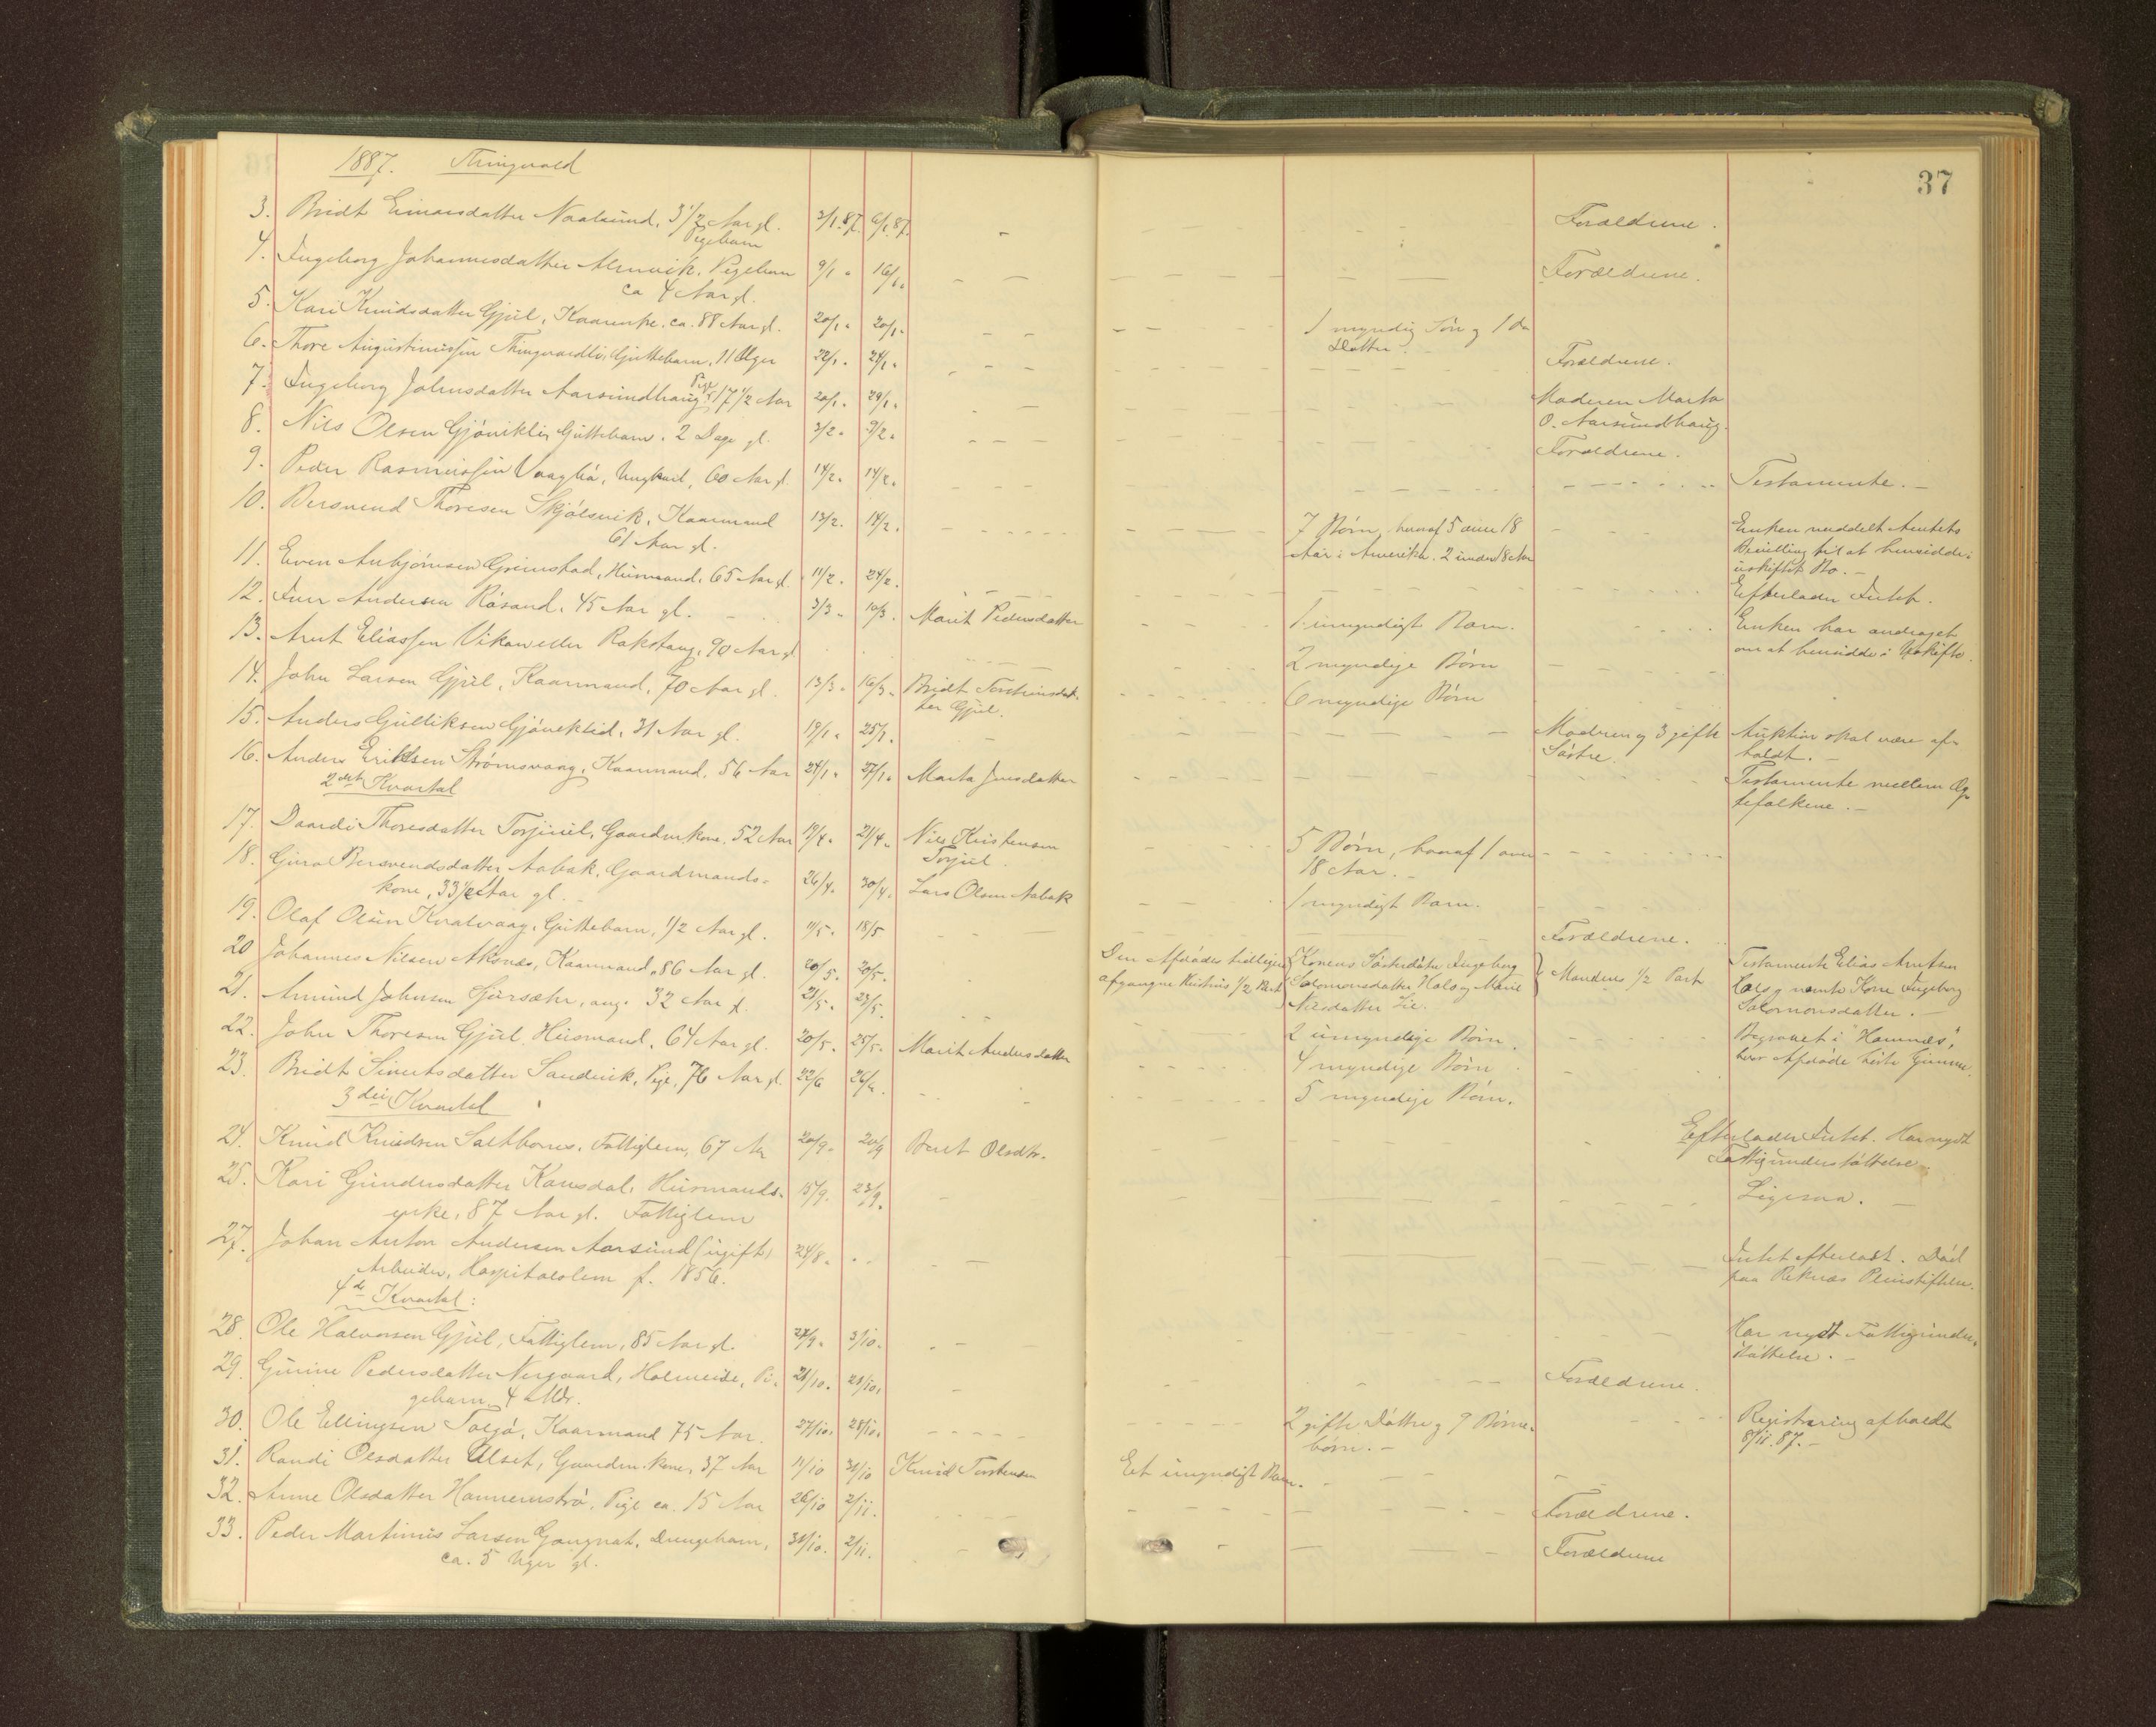 1887. Thingvold
37
3. Bridt Einarsdatter Naalsund, 3 1/2 Aar gl. 3/1.87. 6/1.87. Forældrene.
Pigebarn
4. Ingeborg Johannesdatter Alnvik, Pigebarn 9/1 16/1 Forældrene.
ca 4 Aar gl.
5. Kari Knudsdatter Gjul, Kaarenke, ca. 88 Aar gl. 20/1. 20/1. 1 myndig Søn og 1 do
Datter.
6. Thore Augustinussen Thingvoldli, Guttebarn, 11 Uger 22/1. 24/1. Forældrene.
7. Ingeborg Johnsdatter Aarsundhaug Pige 17 1/2 Aar 20/1. 29/1. Moderen Marta
O. Aarsundhaug.
8. Nils Olsen Gjøvikli, Guttebarn. 2 Dage gl. 3/2. 9/2. Forældrene.
9. Peder Rasmussen Vaagbø, Ungkarl, 60 Aar gl. 14/2. 14/2. Testamente.
10. Bersvend Thoresen Skjølsvik, Kaarmand 13/2. 14/2. 7 Børn, heraf 5 over 18
61 Aar gl. Aar i Amerika. 2 under 18 Aar
Enken meddelt Amtets
Bevilling til at hensidde i
uskiftet Bo.
11. Even Anbjørnsen Grimstad, Husmand, 65 Aar gl. 11/2. 24/2. Efterlader Intet.
12. Iver Andersen Røsand, 45 Aar gl. 3/3. 10/3. Marit Pedersdatter 1 umyndigt Barn. Enken har andraget
om at hensidde i Uskifte.
13. Arnt Eliassen Vikan eller Rakstang, 90 Aar gl 2 myndige Børn
14. John Larsen Gjul, Kaarmand, 70 Aar gl. 13/3. 16/3. Bridt Torstensdat-
ter Gjul. 6 myndige Børn
15. Anders Gulliksen Gjøviklid, 31 Aar gl. 19/1. 25/1. Moderen og 3 gifte
Søstre. Auktion skal være af-
holdt.
16. Anders Eriksen Strømsvaag, Kaarmand, 56 Aar 24/1. 27/1. Marta Jensdatter Testamente mellem Æg-
tefolkene.
2det Kvartal
17. Daardi Thoresdatter Torjul, Gaardm.kone, 52 Aar 19/4. 21/4. Nils Kristensen
Torjul 5 Børn, heraf 1 over
18 Aar.
18. Guro Bersvendsdatter Aabak, Gaardmands-
kone, 33 1/2 Aar gl. 26/4. 30/4. Lars Olsen Aabak 1 myndigt Barn.
19. Olaf Olsen Kvalvaag, Guttebarn, 1/2 Aar gl. 11/5. 18/5 Forældrene.
20 Johannes Nilsen Aksnæs, Kaarmand, 86 Aar gl. 20/5. 20/5. Den Afdødes tidligere
afgangne Hustrus 1/2 Part
Konens Søsterdøtre Ingeborg
Salomonsdatter Hals og Marie
Nilsdatter Lie.
Mandens 1/2 Part
Testamente Elias Arntsen
Hals og nævnte Kone Ingeborg
Salomonsdatter.
21. Amund Johnsen 32 Aar gl. 21/5. 23/5. 2 umyndige Børn. Begravet i "Hamnes",
hvor Afdøde
22. John Thoresen Gjul, Husmand, 64 Aar gl. 20/5. 25/5. Marit Andersdatter 4 myndige Børn
23. Bridt Sivertsdatter Sandvik, Pige, 76 Aar gl. 22/6 26/6. 5 myndige Børn.
3die Kvartal
24. Knud Knudsen Saltbones, Fattiglem, 67 Aar 20/9. 20/9 Beret Olsdtr. Efterlader Intet. Har nydt
Fattigunderstøttelse.
25. Kari Gundersdatter Kamsdal, Husmands-
enke, 87 Aar gl. Fattiglem 15/9. 23/9. Ligesaa.
27. Johan Anton Andersen Aarsund (ugift) 24/8. Intet efterladt. Død
Arbeider, Hospitalslem f. 1856. paa Reknæs Pleiestiftelse.
4de Kvartal:
28. Ole Halvorsen Gjul, Fattiglem, 85 Aar gl. 27/9. 3/10. Har nydt Fattigunder-
støttelse.
29. Gurine Pedersdatter Nergaard, Holmeide, Pi-
gebarn, 4 Mdr. 21/10. 21/10. Forældrene.
30. Ole Ellingsen Talgø, Kaarmand 75 Aar. 27/10. 28/10. 2 gifte Døttre og 9 Børne-
børn. Registrering afholdt
8/11.87.
31. Randi Olsdatter Ulset, Gaardm.kone, 37 Aar 11/10 31/10 Knud Torstensen Eet umyndigt Barn.
32. Anne Olsdatter Hammerstrø, Pige ca. 15 Aar 26/10 2/11. Forældrene.
33. Peder Martinus Larsen Gangnat, Drengebarn, 31/10. 2/11. Forældrene
ca. 5 Uger gl.